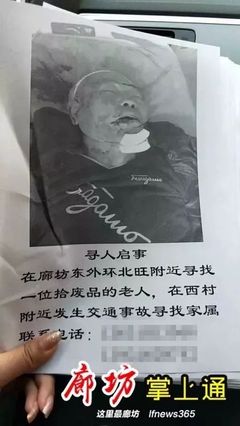 寻人启事
在廊坊东外环北旺附近寻找
一位拾废品的老人，在西村
附近发生交通事故寻找家属
联系电话：
廊坊 掌上通
这里最廊坊 lfnews365